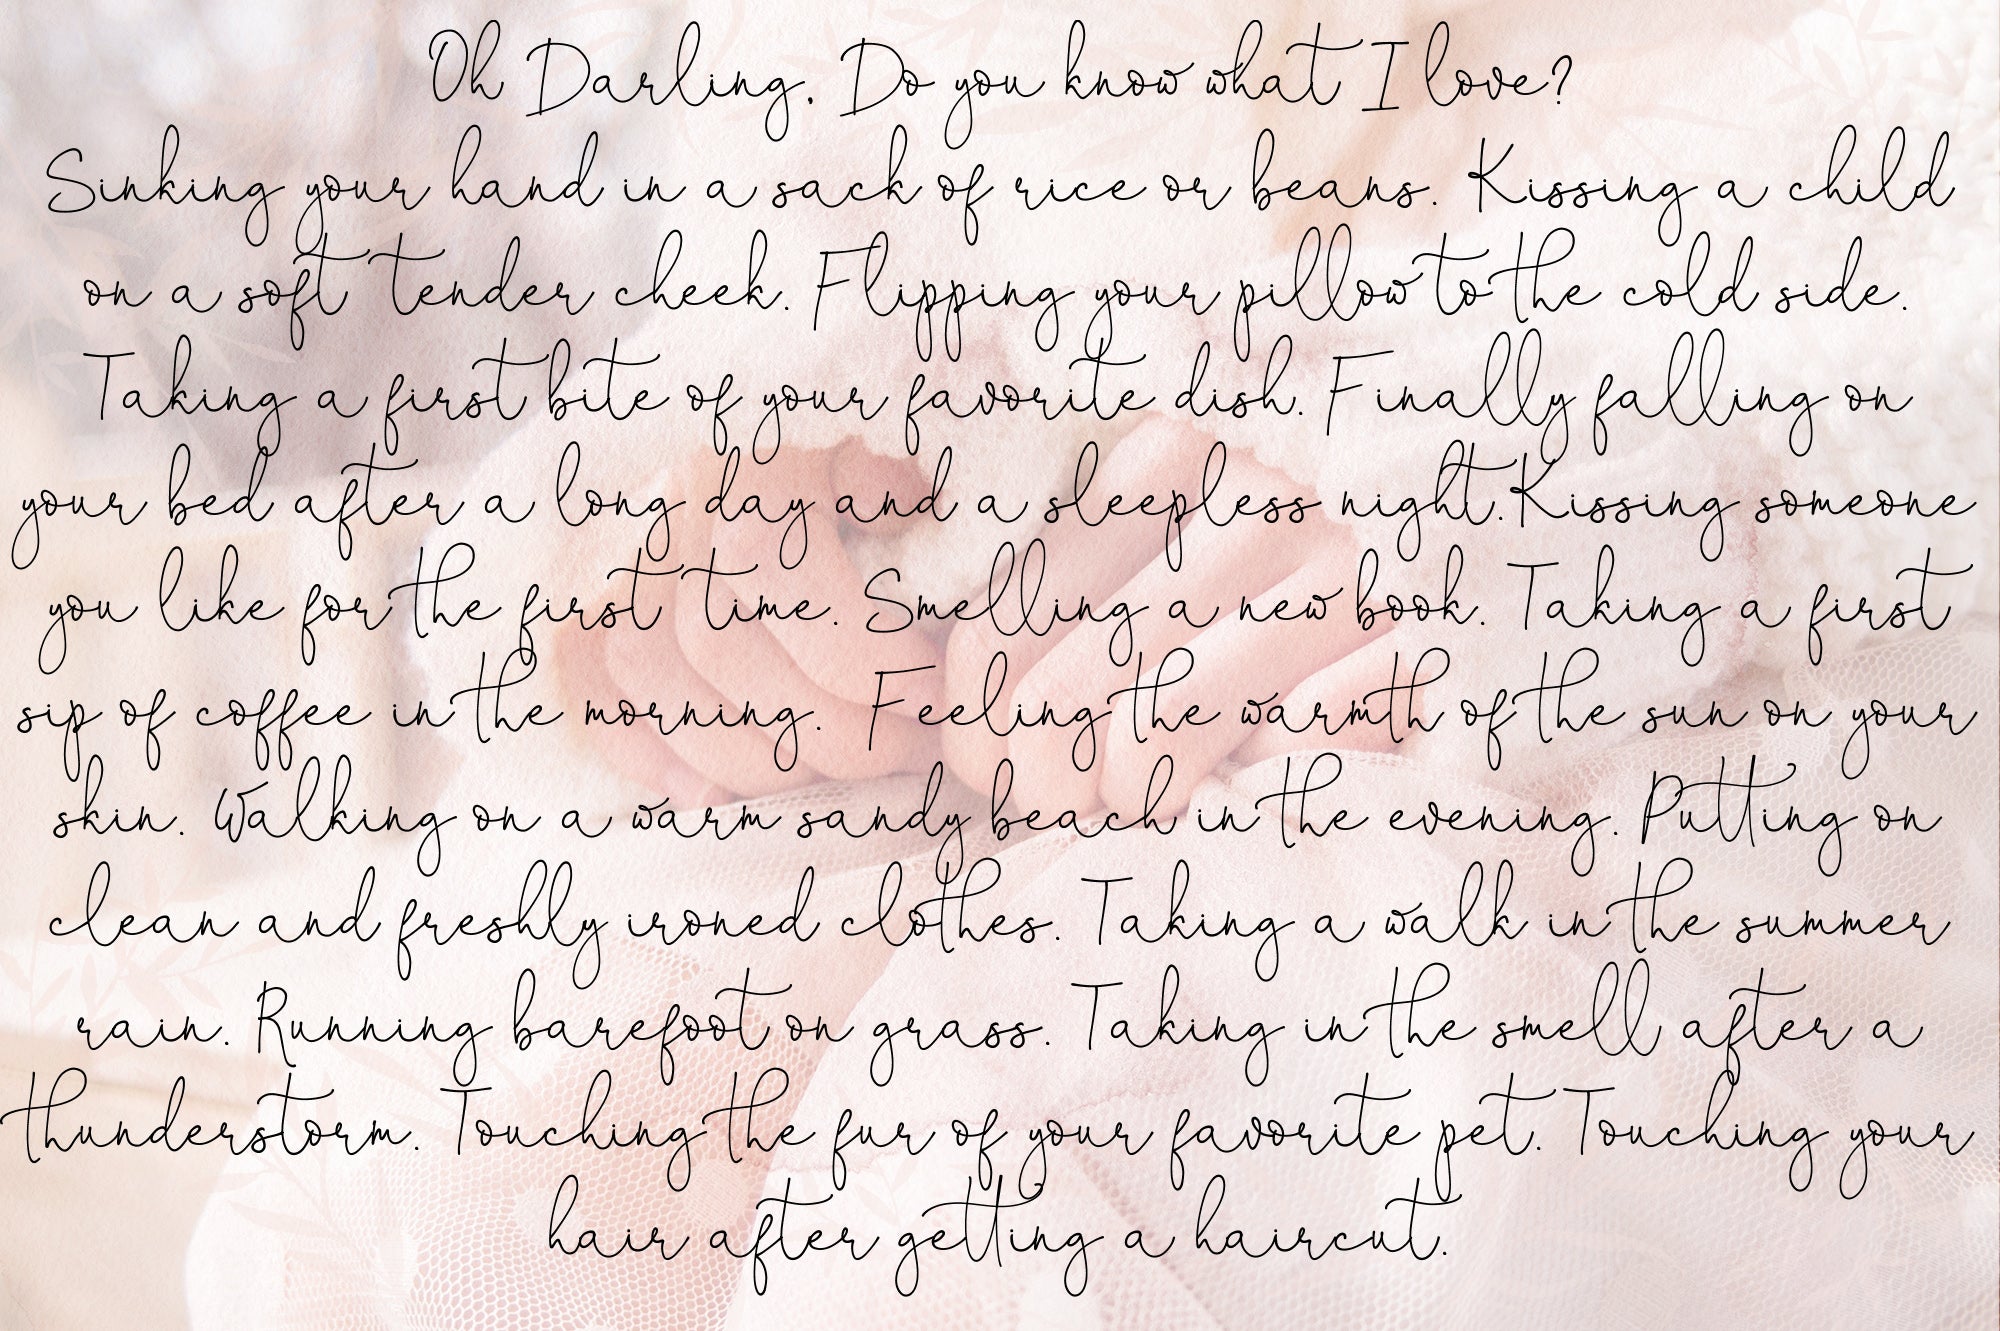 Oh Darling, Do you know what I love?
Sinking your hand in a sack of rice or beans. Kissing a child
on a soft tender cheek. Flipping your pillow to the cold side.
Taking a first bite of your favorite dish. Finally falling on
your bed after a long day and a sleepless night.Kissing someone
you like for the first time. Smelling a new book. Taking a first
sip of coffee in the morning. Feeling the warmth of the sun on your
skin. Walking on a warm sandy beach in the evening. Putting on
clean and freshly ironed clothes. Taking a walk in the summer
rain. Running barefoot on grass. Taking in the smell after a
thunderstorm. Touching the fur of your favorite pet. Touching your
hair after getting a haircut.